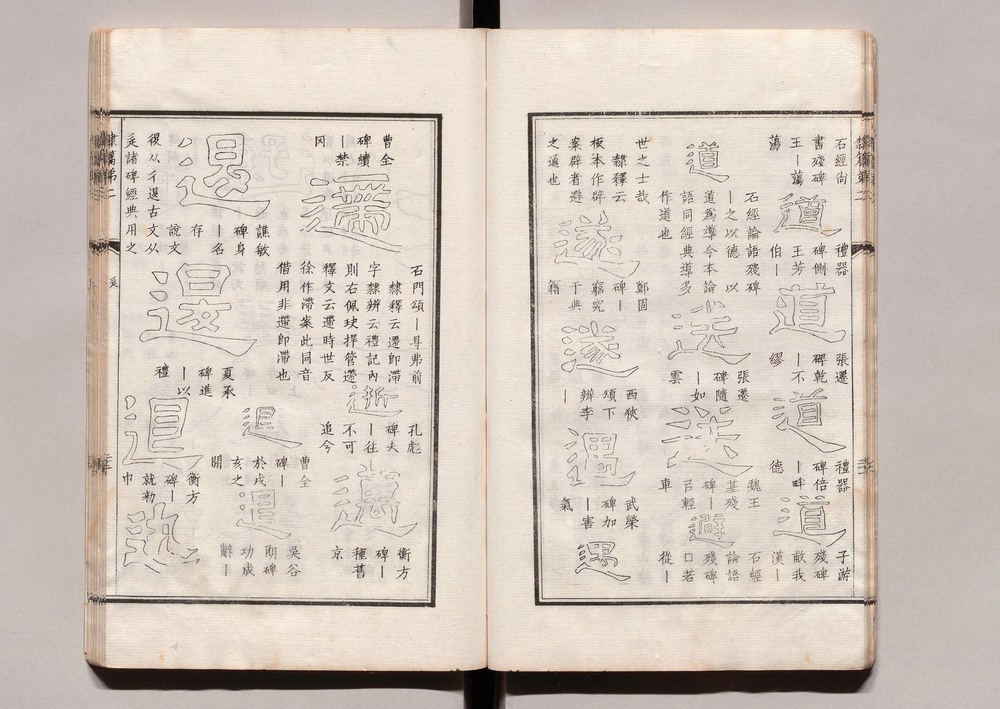 石經尚
書殘碑
王ー蕩
蕩
道
禮器
碑側
王芳
伯ー
道
張遷
碑乾
ー不
繆
道
禮器
碑倍
ー畔
德
道
子游
殘碑
散我
漢ー
道
石經論語殘碑
ー之以德
道爲導今本論
語同經典導多
作道也
送
張遷
碑隨
ー如
雲
送
魏王
基殘
碑ー
呂輕
車
避
石經
論語
殘碑
口若
從ー
世之士哉
隸釋云
板本作辟
案辟者避
之通也
遂
鄭固
碑ー
窮究
于典
籍
遂
西狹
頌下
辨李
ー
遇
武榮
碑加
ー害
氣
遇
曹全
碑續
ー禁
冈
遰
石門頌ー㝵弗前
隸釋云遰即滯
字隸辨云禮記內
則右佩玦捍管遰
釋文云遰時世反
徐作滯案此同音
借用非遰即滯也
逝
孔彪
碑夫
ー往
不可
追今
邁
衡方
碑ー
種舊
京
退
譙敏
碑身
ー名
存
說文
復从彳退古文从
辵諸碑經典用之
退
夏承
碑進
ー以
禮
退
曹全
碑ー
於戌
亥之
間
退
吳谷
朗碑
功成
辭ー
退
衡方
碑ー
就勑
巾
隸篇弟二